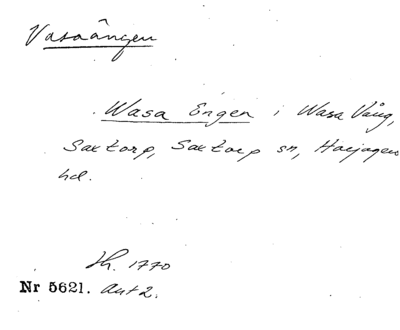 Vasaängen
Wasa Engen i Wasa Vång,
Saxtorp, Saxtorp sn, Harjagers
hd.
Jh. 1770
Nr 5621. Ant 2.